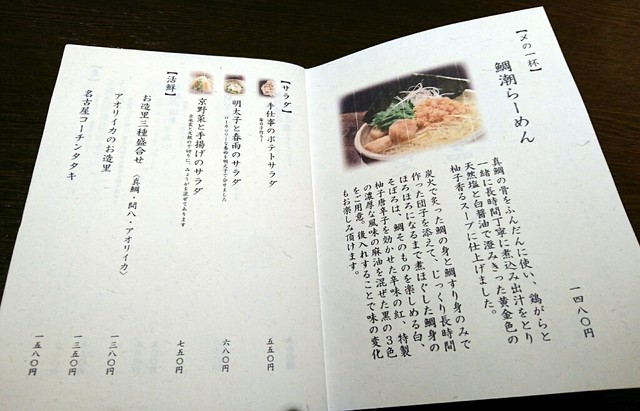 【〆の一杯】
鯛潮らーめん
一四八〇円
真鯛の骨をふんだんに使い、鶏がらと
一緒に長時間丁寧に煮込み出汁をとり
天然塩と白醤油で澄みきった黄金色の
柚子香るスープに仕上げました。
炭火で炙った鯛の身と鯛すり身のみで
作った団子を添えて、じっくり長時間
ほろほろになるまで煮ほぐした鯛身の
そぼろは、鯛そのものを楽しめる白、
柚子唐辛子を効かせた辛味の紅、特製
の濃厚な風味の麻油を混ぜた黒の3色
をご用意。後入れすることで味の変化
もお楽しみ頂けます。
【サラダ】
手仕事のポテトサラダ
五五〇円
明太子と春雨のサラダ
六八〇円
京野菜と手揚げのサラダ
七五〇円
【活鮮】
お造里三種盛合せ〈真鯛・間八・アオリイカ〉
一三八〇円
アオリイカのお造里
一三五〇円
名古屋コーチンタタキ
一五八〇円